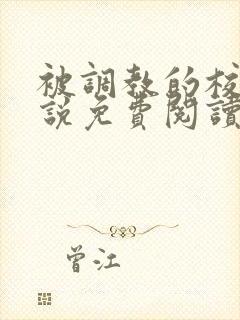 被調教的校
說免費閱讀
曾江